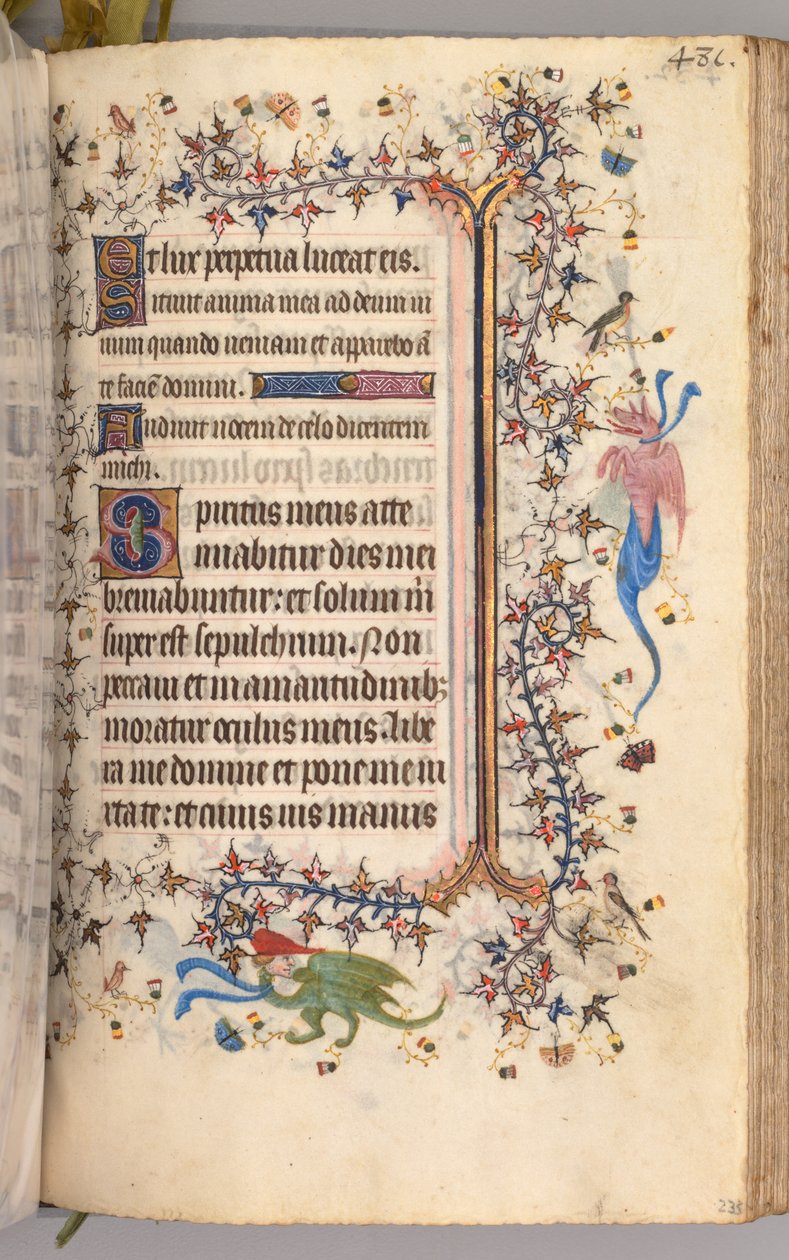 486.
Et lux perpetua luceat eis.
Sitiuit anima mea ad deum ui
uum quando ueniam et apparebo ā
te faciē domini.
Audiuit uocem de celo dicentem
michi.
Spiritus meus atte
nuabitur dies mei
breuiabuntur: et solum m̄
super est sepulchrum. Non
peccaui et in amaritudinibꝫ
moratur oculus meus. Libe
ra me domine et pone me iu
xta te: et cuius uis manus
235